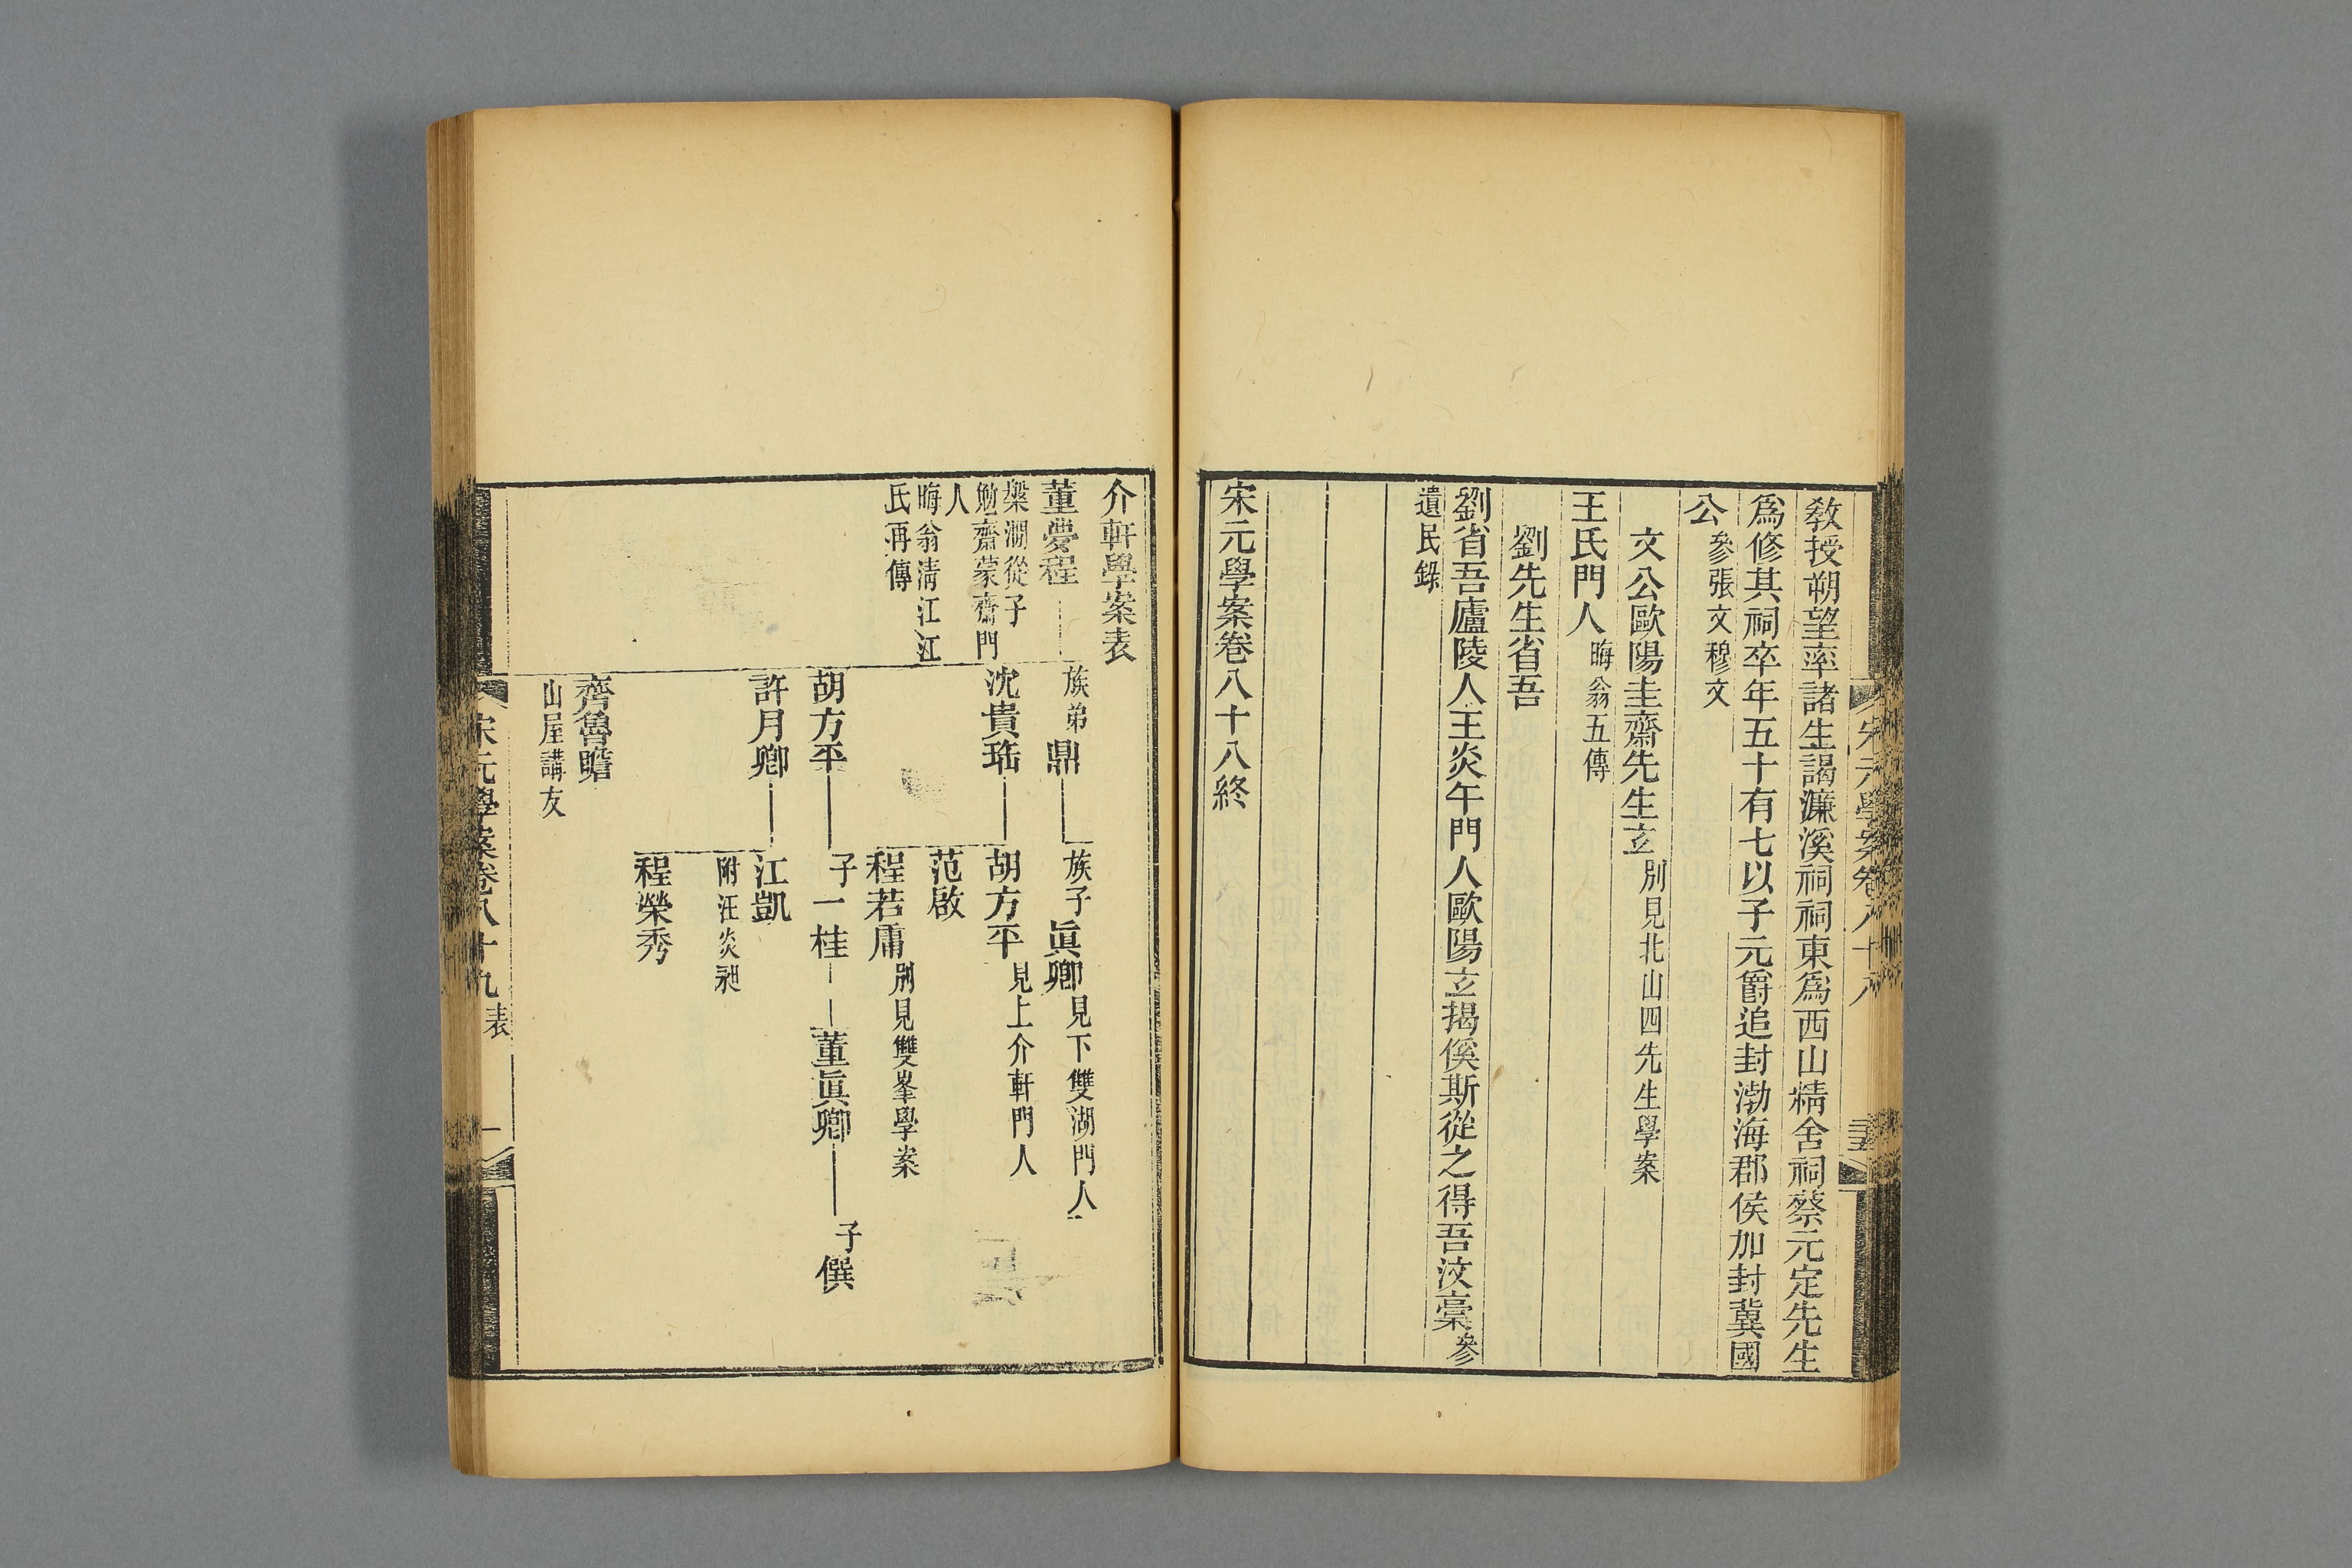 教授朔望率諸生謁濂溪祠祠東爲西山精舍祠蔡元定先生
爲修其祠卒年五十有七以子元爵追封渤海郡侯加封冀國
公參張文穆文
文公歐陽圭齋先生玄別見北山四先生學案
王氏門人晦翁五傳
劉先生省吾
劉省吾廬陵人王炎午門人歐陽玄揭傒斯從之得吾汶稾參
遺民錄
宋元學案卷八十八終
宋元學案卷八十八
介軒學案表
董夢程
槃澗從子
勉齋蒙齋門
人
晦翁淸江江
氏再傳
族弟鼎
族子眞卿見下雙湖門人
沈貴珤
胡方平見上介軒門人
范啟
程若庸別見雙峯學案
胡方平
子一桂
董眞卿
子僎
許月卿
江凱
附汪炎昶
程榮秀
齊魯瞻
山屋講友
宋元學案卷八十九表
一